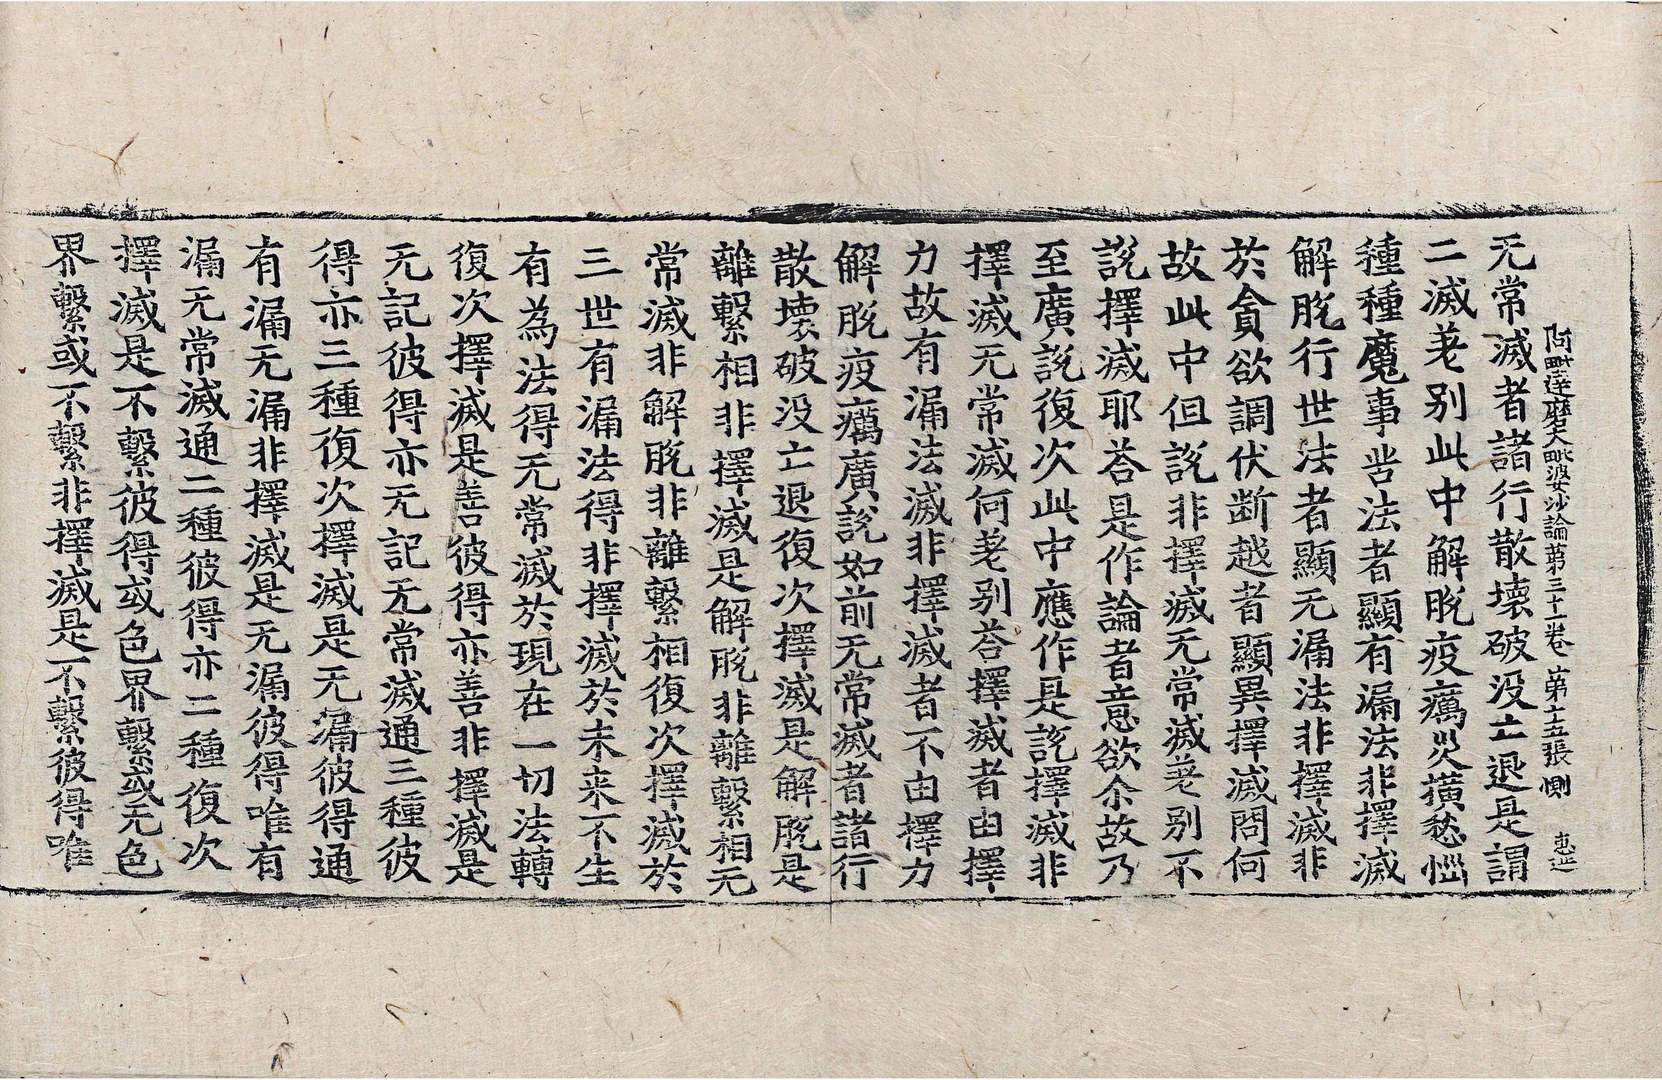 阿毗達磨大毗婆沙論第三十一卷 第十五張 惻
无常滅者諸行散壞破没亡退是謂
二滅差別此中解脫疫癘災橫愁惱
種種魔事苦法者顯有漏法非擇滅
解脫行世法者顯无漏法非擇滅非
於貪欲調伏斷越者顯異擇滅問何
故此中但說非擇滅无常滅差別不
說擇滅耶荅是作論者意欲尒故乃
至廣說復次此中應作是說擇滅非
擇滅无常滅何差別荅擇滅者由擇
力故有漏法滅非擇滅者不由擇力
解脫疫癘廣說如前无常滅者諸行
散壞破没亡退復次擇滅是解脫是
離繫相非擇滅是解脫非離繫相无
常滅非解脫非離繫相復次擇滅於
三世有漏法得非擇滅於未来不生
有為法得无常滅於現在一切法轉
復次擇滅是善彼得亦善非擇滅是
无記彼得亦无記无常滅通三種彼
得亦三種復次擇滅是无漏彼得通
有漏无漏非擇滅是无漏彼得唯有
漏无常滅通二種彼得亦二種復次
擇滅是不繫彼得或色界繫或无色
界繫或不繫非擇滅是不繫彼得唯